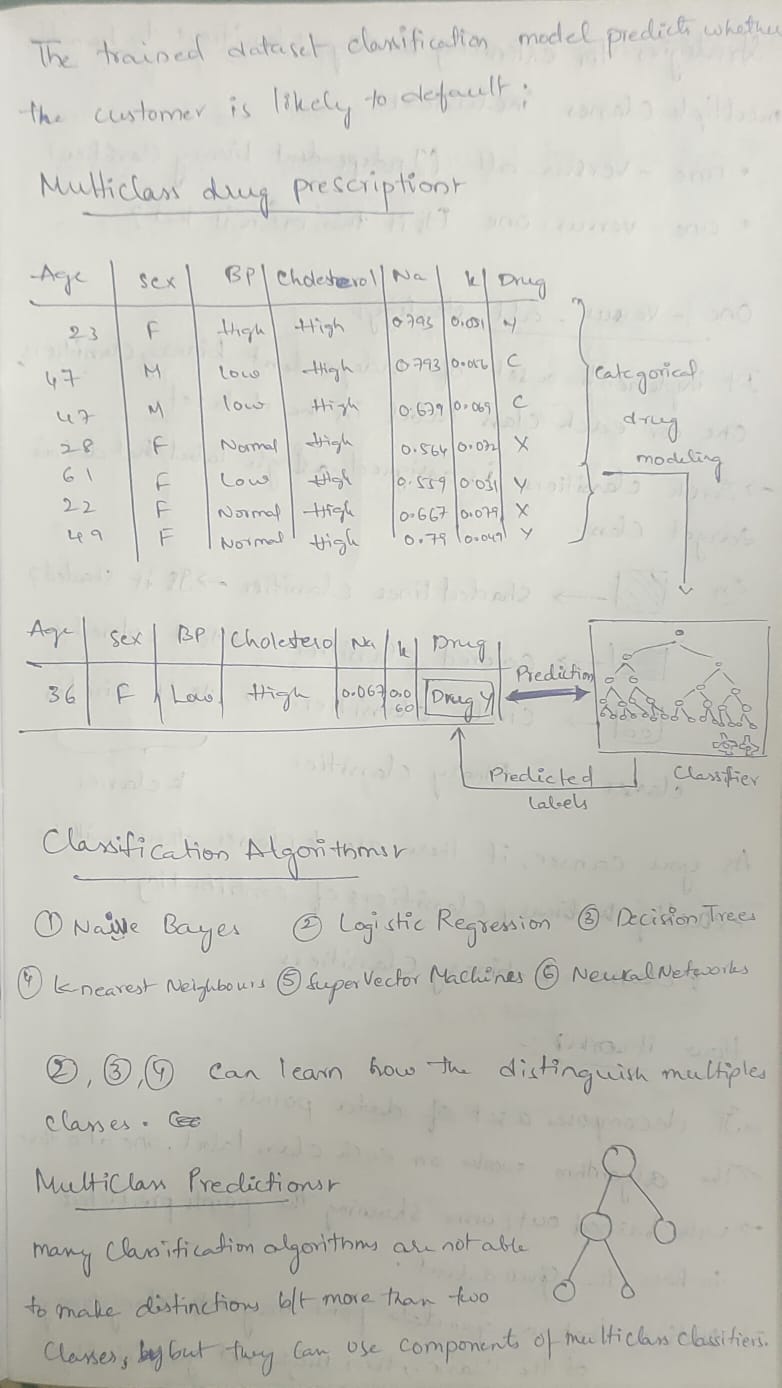 The trained dataset classification model predicts whether
the customer is likely to default:
Multiclass drug prescription:
Age Sex BP Cholesterol Na K Drug
23 F High High 0.793 0.031 Y
47 M Low High 0.793 C
47 M Low High 0.679 0.069 C
28 F Normal High 0.564 0.072 X
61 F Low High 0.559 0.031 Y
22 F Normal High 0.667 0.079 X
49 F Normal High 0.79 0.049 Y
Categorical
drug
modeling
Age Sex BP Cholesterol Na K Drug
36 F Low High 0.067 0.060 Drug Y
Prediction
Predicted
labels
Classifier
Classification Algorithms:
① Naive Bayes ② Logistic Regression ③ Decision Trees
④ K nearest Neighbours ⑤ Super Vector Machines ⑥ Neural Networks
②, ③, ④ can learn how the distinguish multiples
classes.
Multiclass Predictions:
many classification algorithms are not able
to make distinctions b/t more than two
classes, but they can use components of multiclass classifiers.